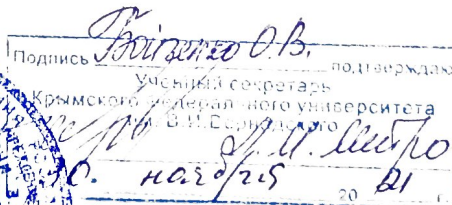 Подпись О.В. подтверждаю
Ученый секретарь
Крымского федерального университета
им. В.И.Вернадского
Л.М. Митро
ноября 20 21 г.